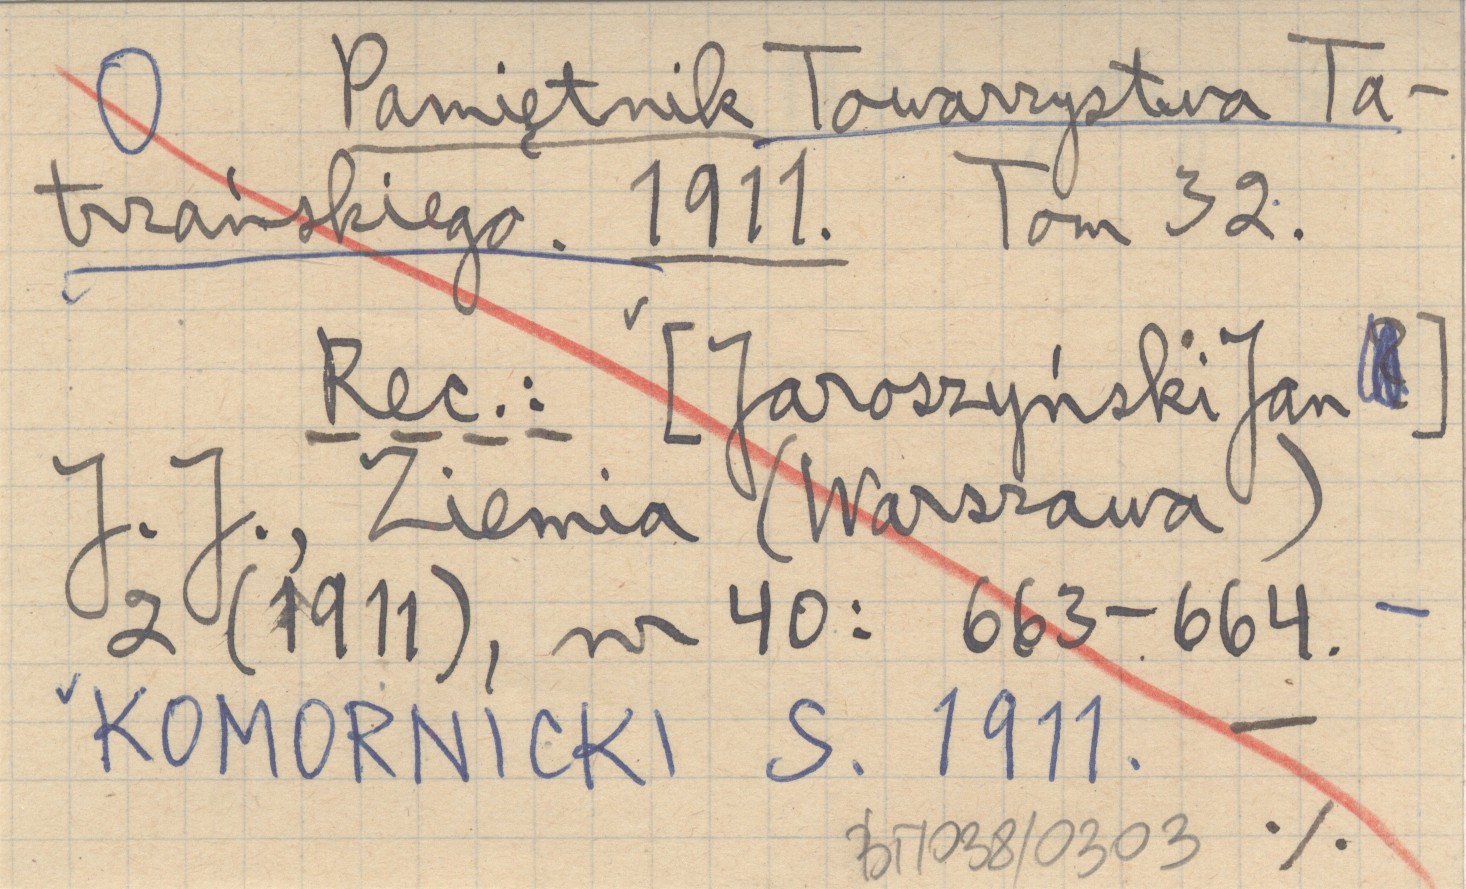 Pamiętnik Towarzystwa Ta-
trzańskiego. 1911. Tom 32.
Rec.: [Jaroszyński Jan]
J. J., Ziemia (Warszawa)
2 (1911), nr 40: 663–664. –
KOMORNICKI S. 1911. —
038/0303 ./.